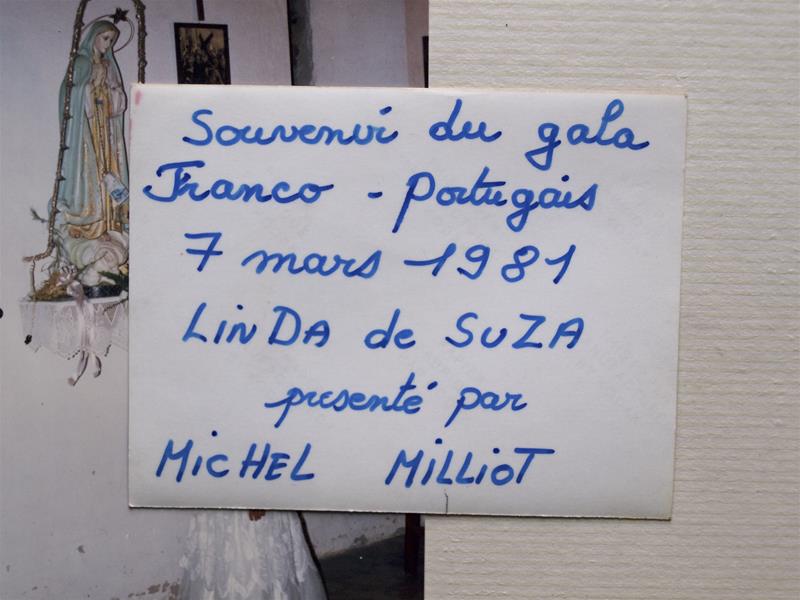 Souvenir du gala
Franco - portugais
7 mars 1981
LinDA de SUZA
presenté par
MicHEL MiLLiOT